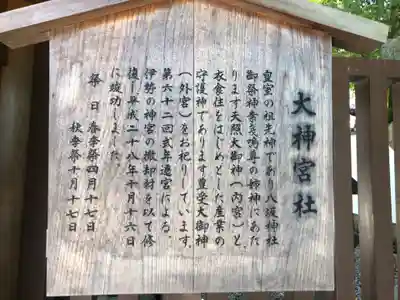 大神宮社
皇室の祖先神であり八坂神社
御祭神素戔嗚尊の姉神にあた
ります天照大御神(内宮)と、
衣食住をはじめとした産業の
守護神であります豊受大御神
(外宮)をお祀りしています。
第六十二回式年遷宮による、
伊勢の神宮の撤却材を以て修
復し平成二十八年十月十六日
に竣功しました。
祭日 春季祭四月十七日
秋季祭十月十七日